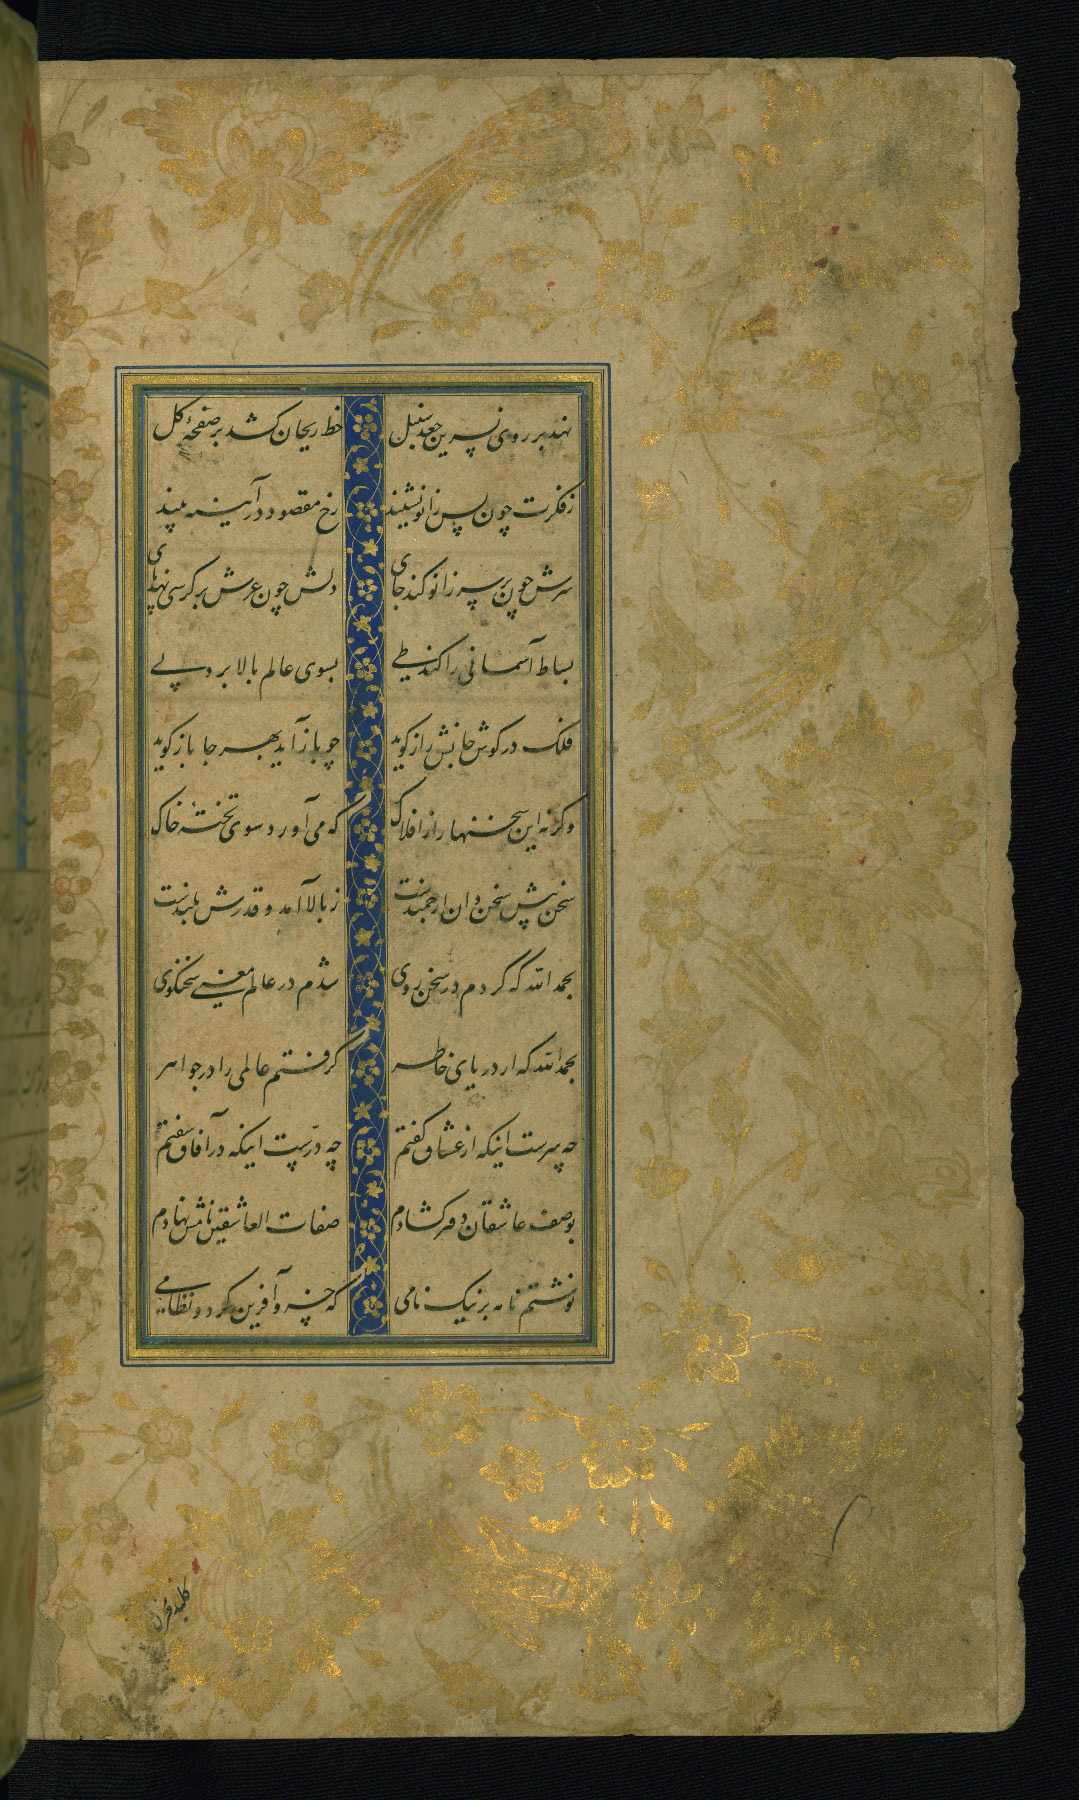 نهد بر روی نسرین جعد سنبل خط ریحان کشد بر صفحهٔ کل
ز فکرت چون پس زانو نشیند رخ مقصود در آینه بیند
سرش چون بر سر زانو کند جای دلش چون عرش بر کرسی نهد پای
بساط آسمانی را کند طی بسوی عالم بالا برد پی
فلک در کوش جانش راز کوید چو باز آید بهر جا باز کوید
وکرنه این سخنها راز افلاک که می آورد سوی تختهٔ خاک
سخن پیش سخن دان ارجمندست ز بالا آمد و قدرش بلندست
بحمد الله که کردم در سخن روی شدم در عالم معنی سخنکوی
بحمد الله که از دریای خاطر کرفتم عالمی را در جواهر
چه سرست اینکه از عشاق کفتم چه درست اینکه در آفاق سفتم
بوصف عاشقان دفتر کشادم صفات العاشقین نامش نهادم
نوشتم نامه بر نیک نامی که خسرو آفرین کرد و نظامی
کلید مخزن